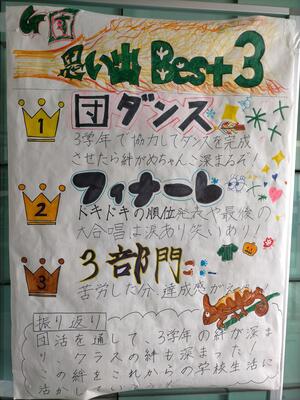 G 3
思い出 Best 3
1
団ダンス
3学年で協力してダンスを完成
させたら絆がめちゃんこ深まるぞ!
2
フィナーレ
ドキドキの順位発表や最後の
大合唱は涙あり笑いあり!
3
3部門
苦労した分、達成感が
振り返り
団活を通して、3学年の絆が深ま
り、クラスの絆も深まった
この絆をこれからの学校生活に
活かして